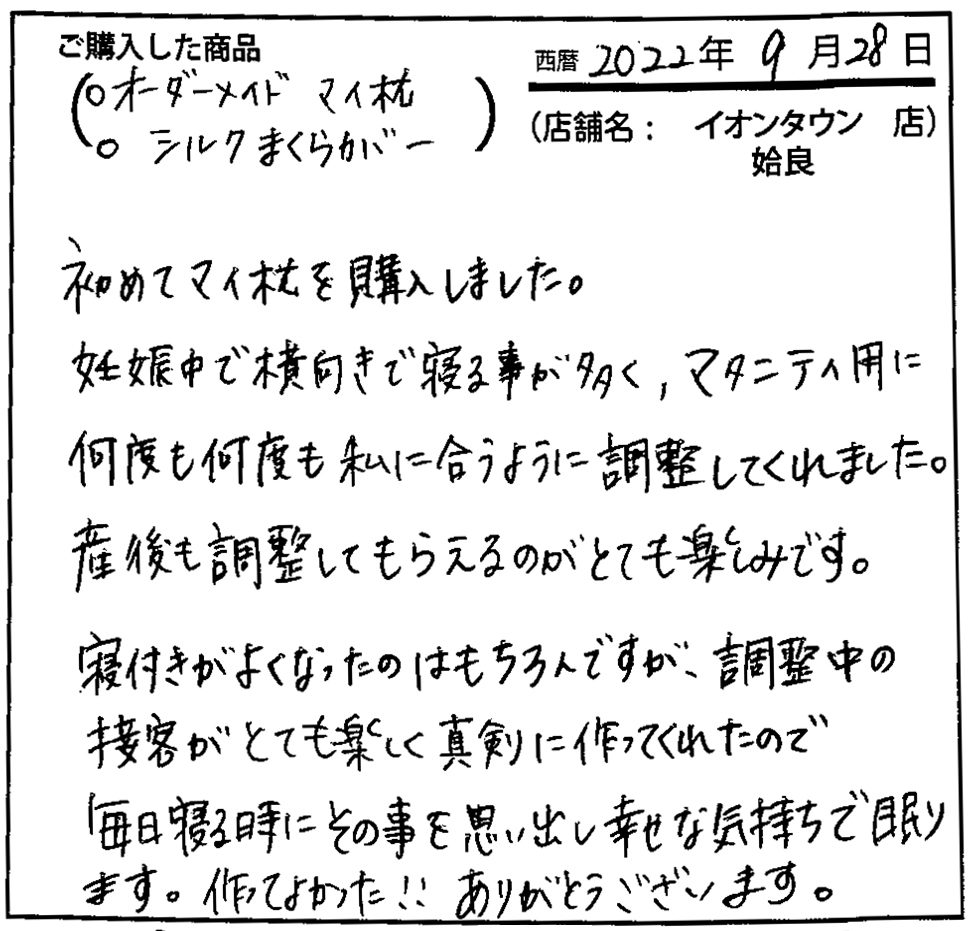 ご購入した商品
(○オーダーメイド マイ枕
○ シルクまくらカバー)
西暦 2022年 9月28日
(店舗名: イオンタウン 店)
姶良
初めてマイ枕を購入しました。
妊娠中で横向きで寝る事が多く,マタニティ用に
何度も何度も私に合うように調整してくれました。
産後も調整してもらえるのがとても楽しみです。
寝付きがよくなったのはもちろんですが、調整中の
接客がとても楽しく真剣に作ってくれたので
毎日寝る時にその事を思い出し幸せな気持ちで眠り
ます。作ってよかった!! ありがとうございます。